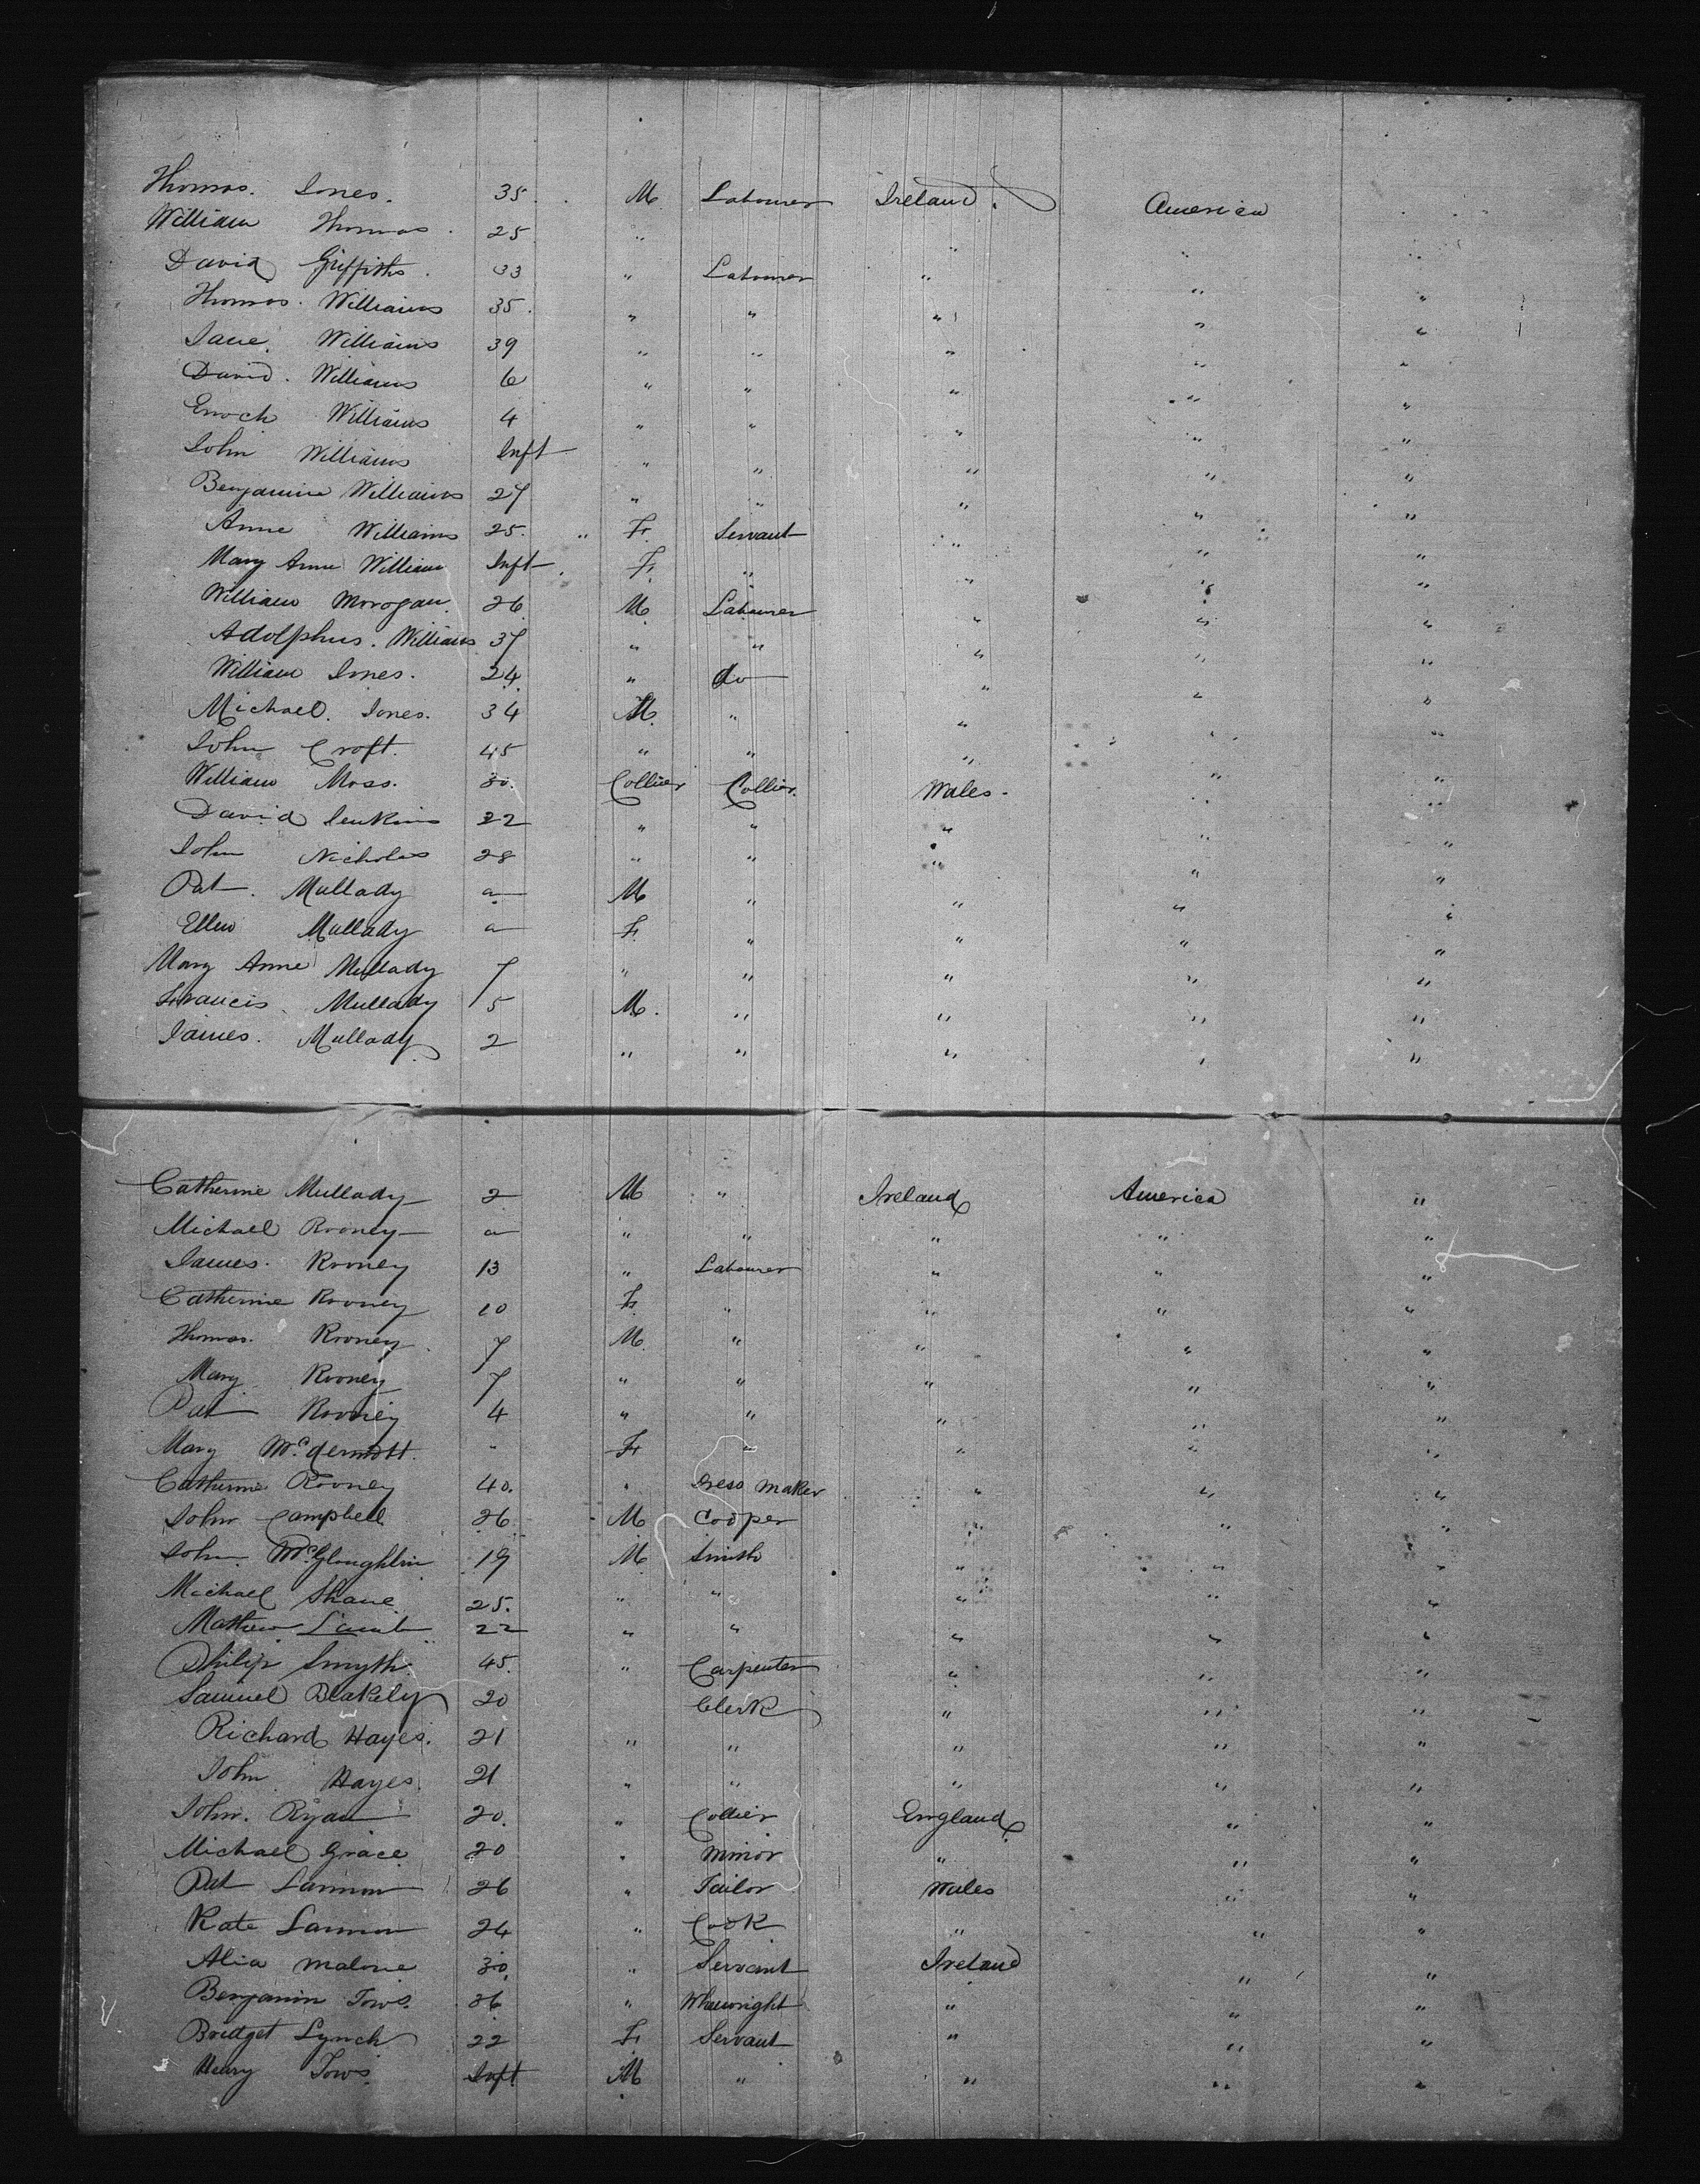 Thomas. Jones. 35. M Labourer Ireland. America
William Thomas. 25 " " " "
David Griffiths. 33 " Labourer " " "
Thomas. Williams 35. " " " " "
Jane. Williams 39 " " " " "
David. Williams 6 " " " " "
Enoch Williams 4 " " " " "
John Williams Inft " " " " "
Benjamine Williams 27 " " " " "
Anne Williams 25. " F. Servant " " "
Mary Anne William Inft. F. " " " "
William Morogan. 26 M. Labourer " " "
Adolphus. Williams 37 " " " " "
William Jones. 24. " do " " "
Michael. Jones. 34 M. " " " "
John Croft. 45 " " " " "
William Moss. 30. Collier Collier. Wales. " "
David Jenkins 22 " " " " "
John Nicholas 28 " " " " "
Pat. Mullady a M " " " "
Ellen Mullady a F. " " " "
Mary Anne Mullady 7 " " " " "
Francis. Mullady 5 M. " " " "
James. Mullady 2 " " " " "
Catherine Mullady 2 M " Ireland America "
Michael Rooney a " " " " "
James. Rooney 13 " Labourer " " "
Catherine Rooney 10 F. " " " "
Thomas. Rooney. 7 M. " " " "
Mary Rooney 7 " " " " "
Pat Rooney 4 " " " " "
Mary McDermott. " F " " " "
Catherine Rooney 40. " Dress Maker " " "
John Campbell 26. M Cooper " " "
John. McGloughlin 19 M Smith " " "
Michael Shane 25. " " " " "
Mathew Lamb 22 " " " " "
Philip Smyth 45. " Carpenter " " "
Samuel Blakely 20 Clerk " " "
Richard Hayes. 21 " " " " "
John Hayes. 21 " " " " "
John. Ryan 20. " Collier England " "
Michael Grace 20 " Minor. " " "
Pat Lannon 26 " Tailor Wales " "
Kate Lannon 24 " Cook " " "
Alia Malone 30. " Servant Ireland " "
Benjamin Tows. 36 " Wheewright " " "
Bridget Lynch 22 F. Servant " " "
Henry Tows. Inft M " " " "